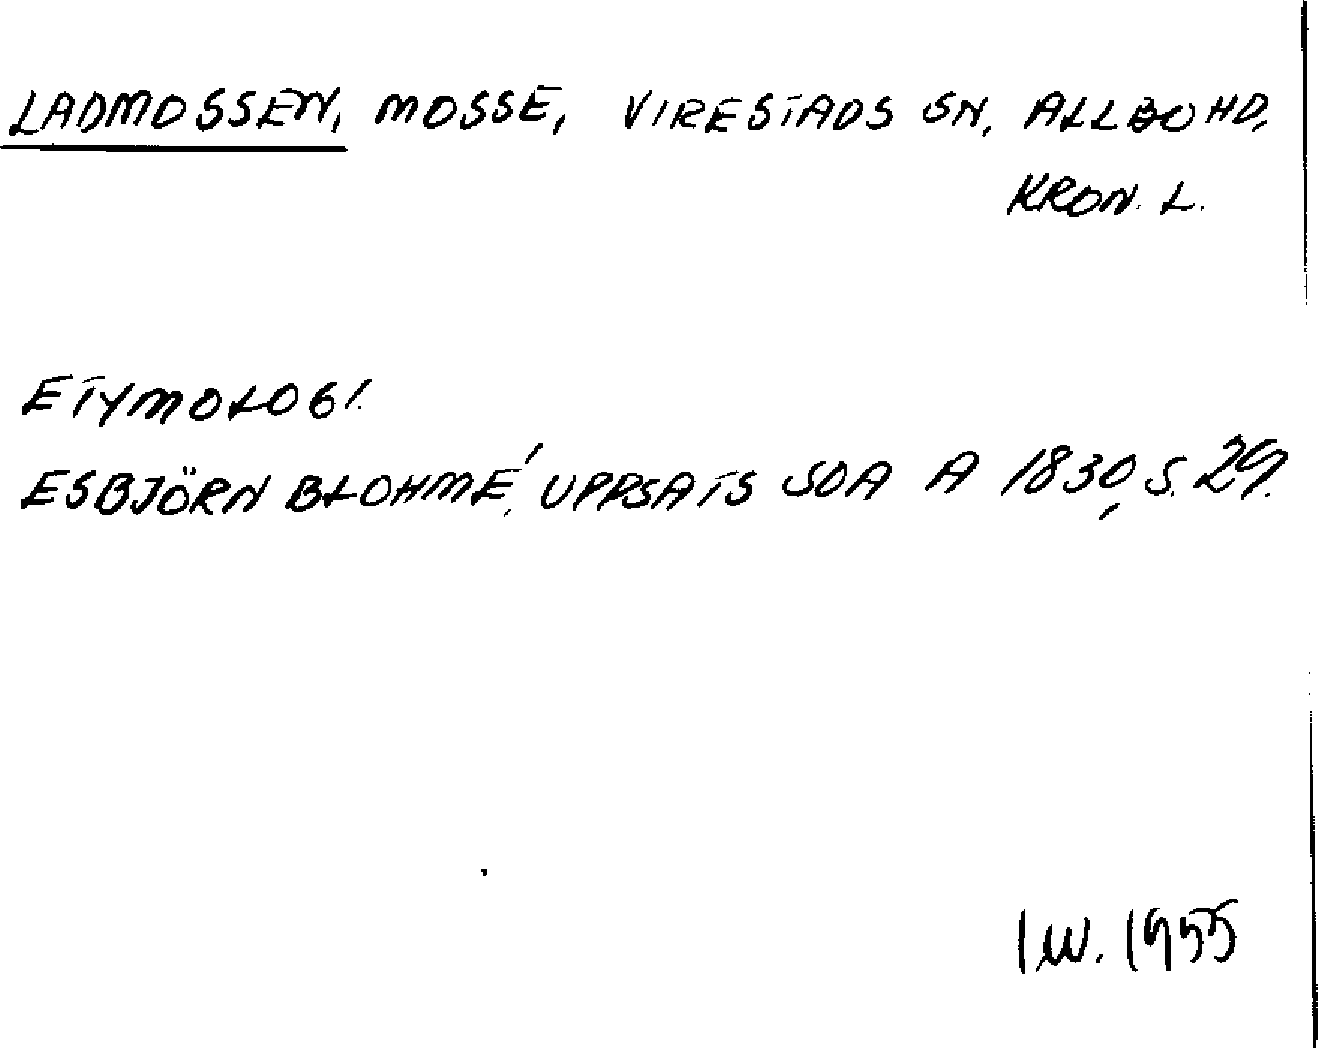 LADMOSSEN, MOSSE, VIRESTADS SN, ALLBO HD,
KRON. L.
ETYMOLOGI.
ESBJÖRN BLOHMÉ, UPPSATS SOA A 1830, S. 29.
IW. 1955